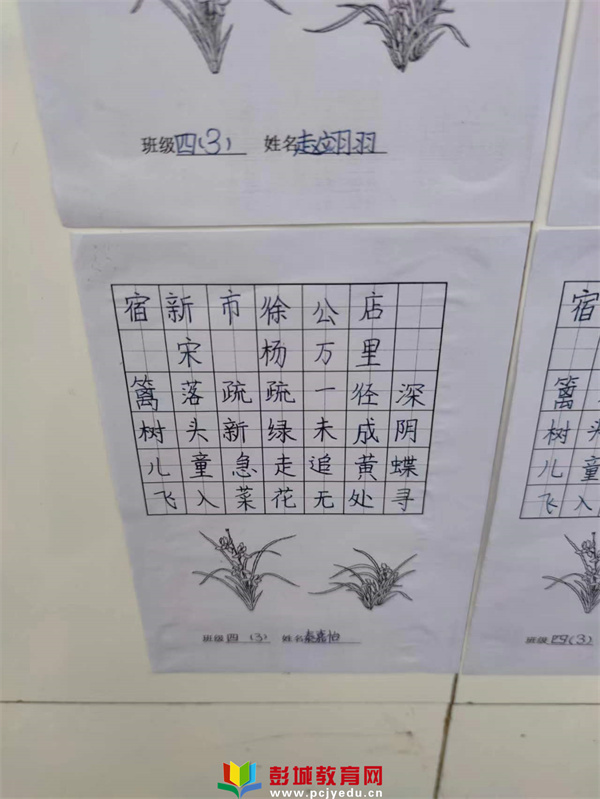 班级四(3) 姓名赵翊羽
宿新市徐公店
宋 杨万里
篱落疏疏一径深
树头新绿未成阴
儿童急走追黄蝶
飞入菜花无处寻
班级四(3) 姓名
宿
篱
树头
儿童
飞入
班级四(3)
彭城教育网
www.pcjyedu.cn